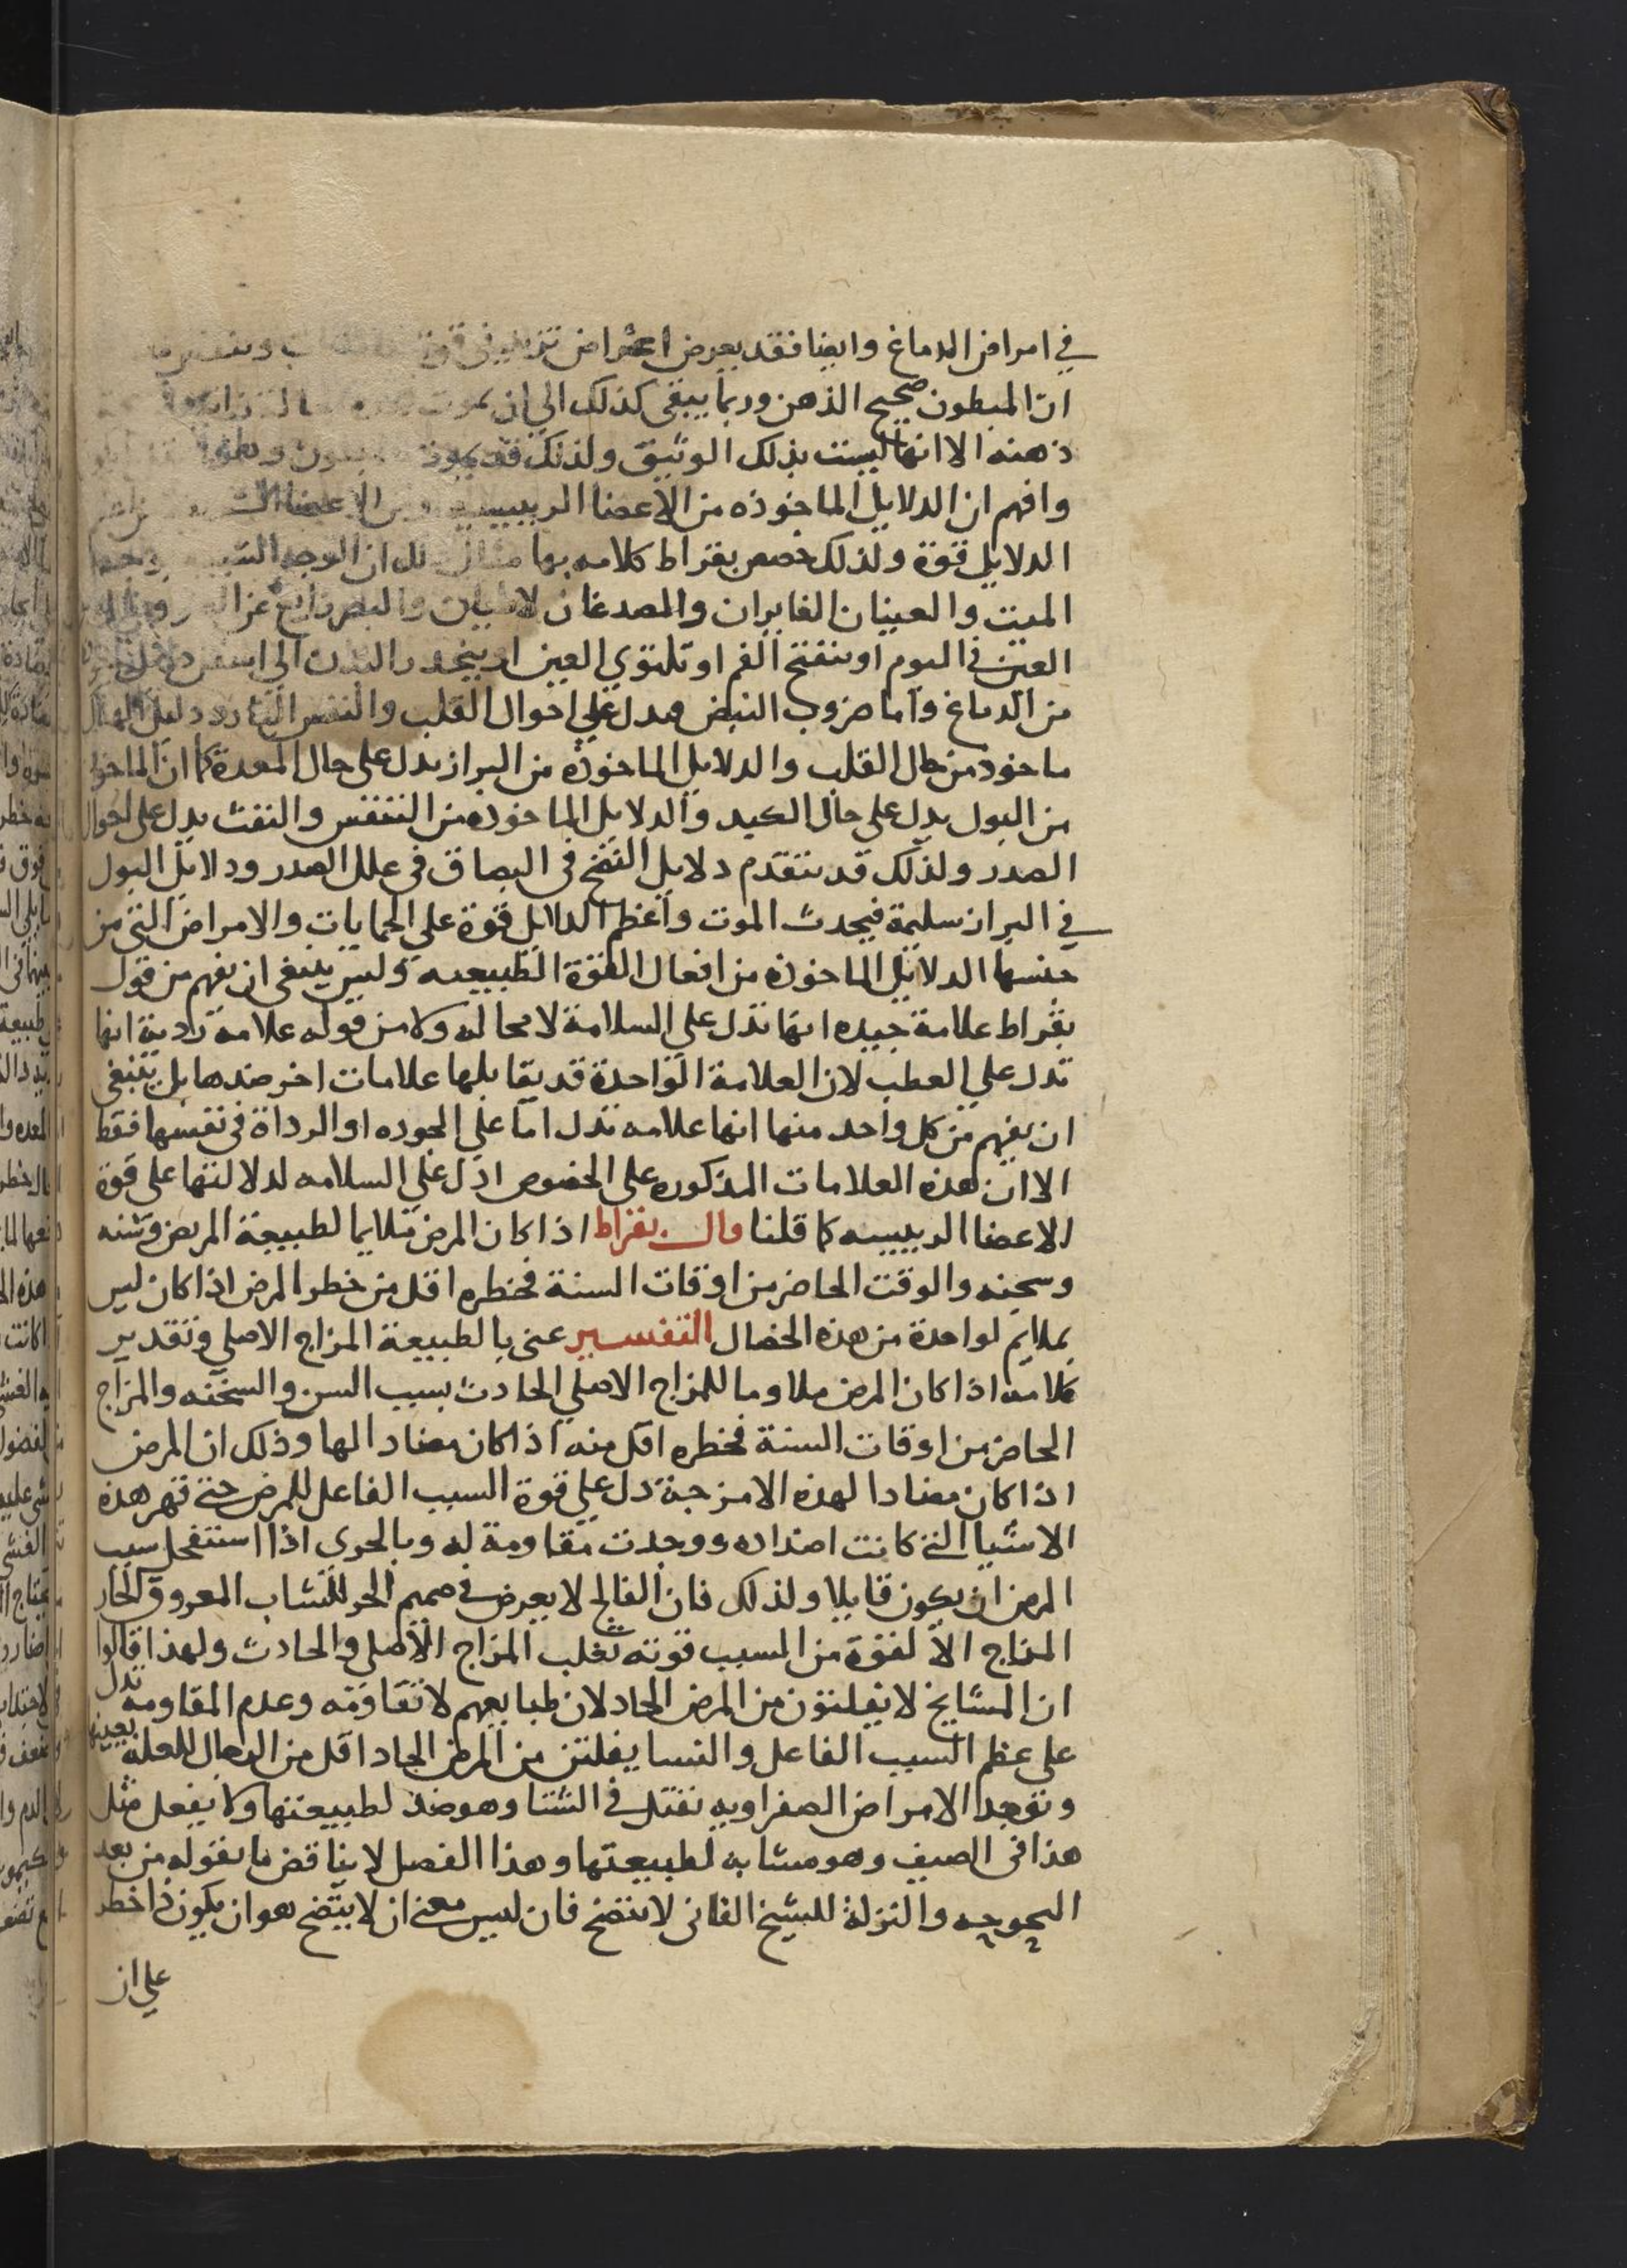 في امراض الدماغ وايضا فقد يعرض اعراض
ان المبطون صحيح الذهن وربما يبقى كذلك الي ان يموت
ذهنه الا انها ليست بذلك الوثيق ولذلك قد
وافهم ان الدلايل الماخوذه من الاعضا الرييسية
الدلايل قوة ولذلك خصص بقراط كلامه بها مثال ذلك ان الوجه الشبيه بوجه
الميت والعينان الغايران والصدغان لاطيان والبصر زايغ عن
العين في النوم او ينفتح الفم او تلتوي العين او ينحدر البدن الي اسفل
من الدماغ واما ضروب النبض فيدل علي احوال القلب والنفس البارد دليل الهلاك
ماخوذ من حال القلب والدلايل الماخوذه من البراز يدل على حال المعدة كما ان الماخوذ
من البول يدل على حال الكبد والدلايل الماخوذه من التنفس والنفث يدل على احوال
الصدر ولذلك قد يتقدم دلايل النضج في البصاق في علل الصدر ودلايل البول
في البراز سليمة فيحدث الموت واعظم الدلايل قوة علي الحمايات والامراض التي من
جنسها الدلايل الماخوذه من افعال القوة الطبيعيه وليس ينبغي ان يفهم من قول
بقراط علامة جيده انها تدل علي السلامة لا محاله ولا من قوله علامة ردية انها
تدل علي العطب لان العلامة الواحدة قد يقابلها علامات اخر ضدها بل ينبغي
ان يفهم من كل واحد منها انها علامه تدل اما علي الجوده او الرداة في نفسها فقط
الا ان هذه العلامات المذكوره علي الخصوص ادل علي السلامه لدلالتها علي قوة
الاعضا الرييسيه كما قلنا قال بقراط اذا كان المرض ملايما لطبيعة المريض وسنه
وسحنه والوقت الحاضر من اوقات السنة فخطره اقل من خطر المرض اذا كان ليس
بملايم لواحدة من هذه الخصال التفسير عنى بالطبيعة المزاج الاصلي وتقدير
كلامه اذا كان المرض ملاوما للمزاج الاصلي الحادث بسبب السن والسحنه والمزاج
الحاضر من اوقات السنة فخطره اقل منه اذا كان مضادا لها وذلك ان المرض
اذا كان مضادا لهذه الامزجة دل علي قوة السبب الفاعل للمرض حتي قهر هذه
الاشيا التي كانت اضداده ووجدت مقاومة له وبالحرى اذا استفحل سبب
المرض ان يكون قاتلا ولذلك فان الفالج لا يعرض في صميم الحر للشاب المعروق الحار
المزاج الا لقوة من المسبب قوته تغلب المزاج الاصلي والحادث ولهذا قالوا
ان المشايخ لا يفلتون من المرض الحاد لان طبايعهم لا تقاومه وعدم المقاومة تدل
على عظم السبب الفاعل والنسا يفلتن من المرض الحاد اقل من الرجال للعله بعينها
ونجد الامراض الصفراويه تقتل في الشتا وهو ضد لطبيعتها ولا يفعل مثل
هذا في الصيف وهو مشابه لطبيعتها وهذا الفصل لا يناقض ما يقوله من بعد
البحوحه والنزلة للشيخ الفاني لا ينضج فان ليس معنى ان لا ينضج هو ان يكون ذا خطر
علي ان